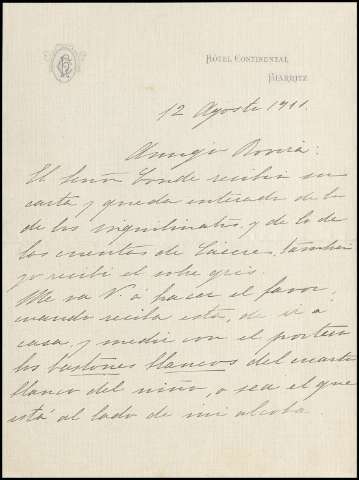 HÔTEL CONTINENTAL
BIARRITZ
12 Agosto 1911.
Amigo Rovira:
El Señor Conde recibió su
carta y queda enterado de lo
de los inquilinatos, y de lo de
las cuentas de Cáceres, tambien
yo recibí el sobre gris.
Me va V. á hacer el favor,
cuando reciba esta, de ir á
casa, y medir con el portero
los bastones blancos del cuarto
blanco del niño, o sea el que
está al lado de mi alcoba.